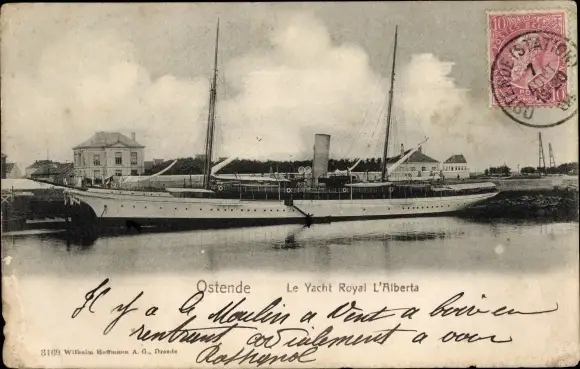 10 10
OSTENDE (STATION)
7
Ostende Le Yacht Royal L'Alberta
Il y a le Moulin a Vent a boire en
rentrant cordialement a vous
3169 Wilhelm Hoffmann A. G., Dresde